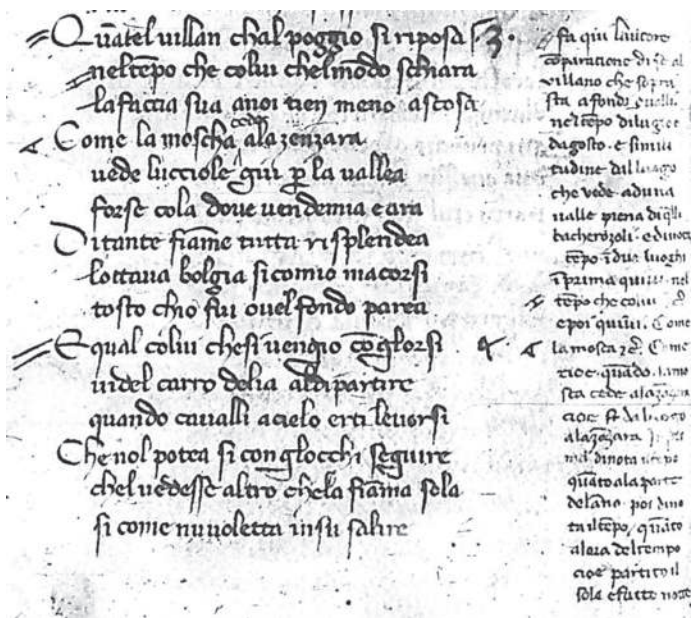 Quātel uillan chal poggio si riposa
nel tēpo che colui chel mōdo schiara
la faccia sua anoi tien meno ascosa
Come la moscha cede ala zenzara
uede lucciole giu ꝑ la uallea
forse cola doue uendemia e ara
Di tante fiāme tutta risplendea
lottaua bolgia si comio macorsi
tosto chio fui ouel fondo parea
E qual colui che si uengio cō glorsi
uidel carro delia aldipartire
quando caualli acielo erti leuorsi
Che nol potea si con glocchi seguire
chel uedesse altro che la fiāma sola
si come nuuoletta insu salire
fa qui lautore
cōparatione di se al
villano che sopra
sta afondi
nel tēpo di luglio
dagosto. e simili
tudine dal luogo
che uede aduna
ualle piena di qͣlli
bacherozoli. e dinota
tēpo ī due luoghi
ī prima quiui. nel
tēpo che colui
e poi quiui. Come
la mosca ⁊c̄. Come
cioe. quādo. la mo
sca cede ala
cioe da luogo
ala zāzara
ma dinota
quāto ala parte
delāno. poi dino
ta il tēpo, quāto
alora del tempo
cioe partito il
sole e fatto notte